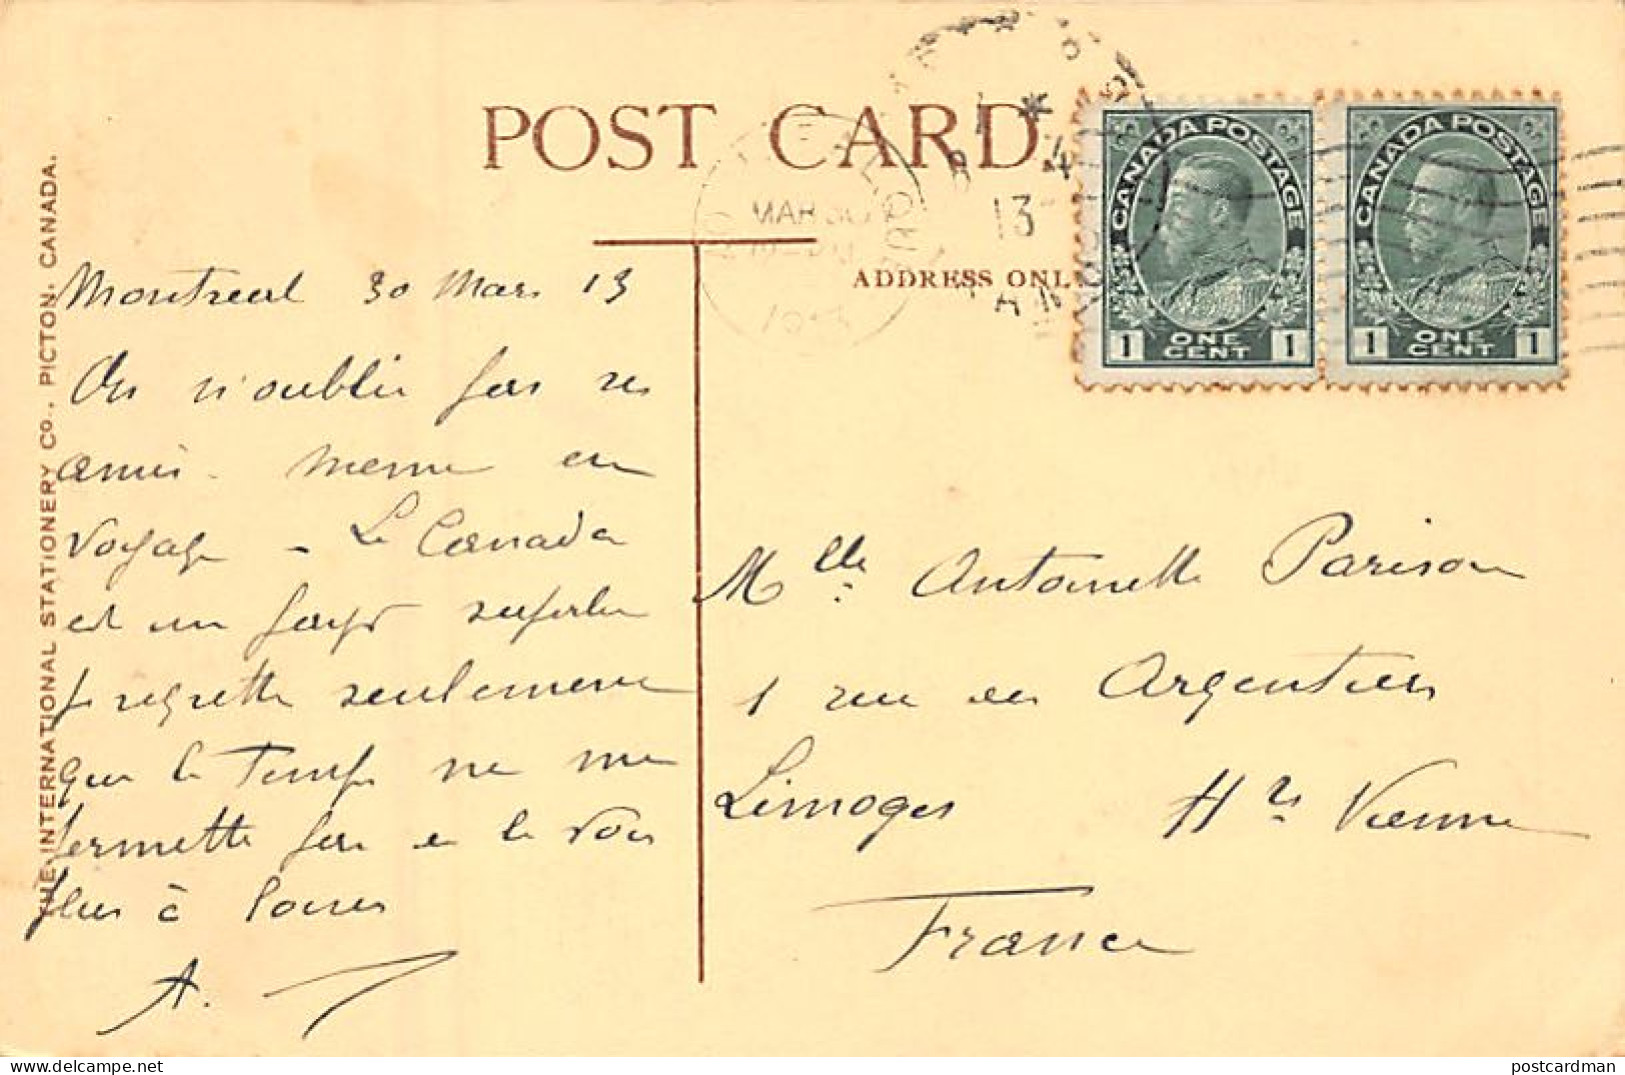 POST CARD
ADDRESS ONL
THE INTERNATIONAL STATIONERY CO., PICTON, CANADA.
CANADA POSTAGE
1 ONE CENT 1
CANADA POSTAGE
1 ONE CENT 1
MAR 30
13
Montreal 30 Mars 13
On n'oublie pas ses
amis - meme en
voyage - Le Canada
est un pays superbe
je regrette seulement
que le temps ne me
permette pas de le voir
plus à loisir
A.
Mlle Antoinette Parison
1 rue des Argentiers
Limoges Hte Vienne
France
postcardman